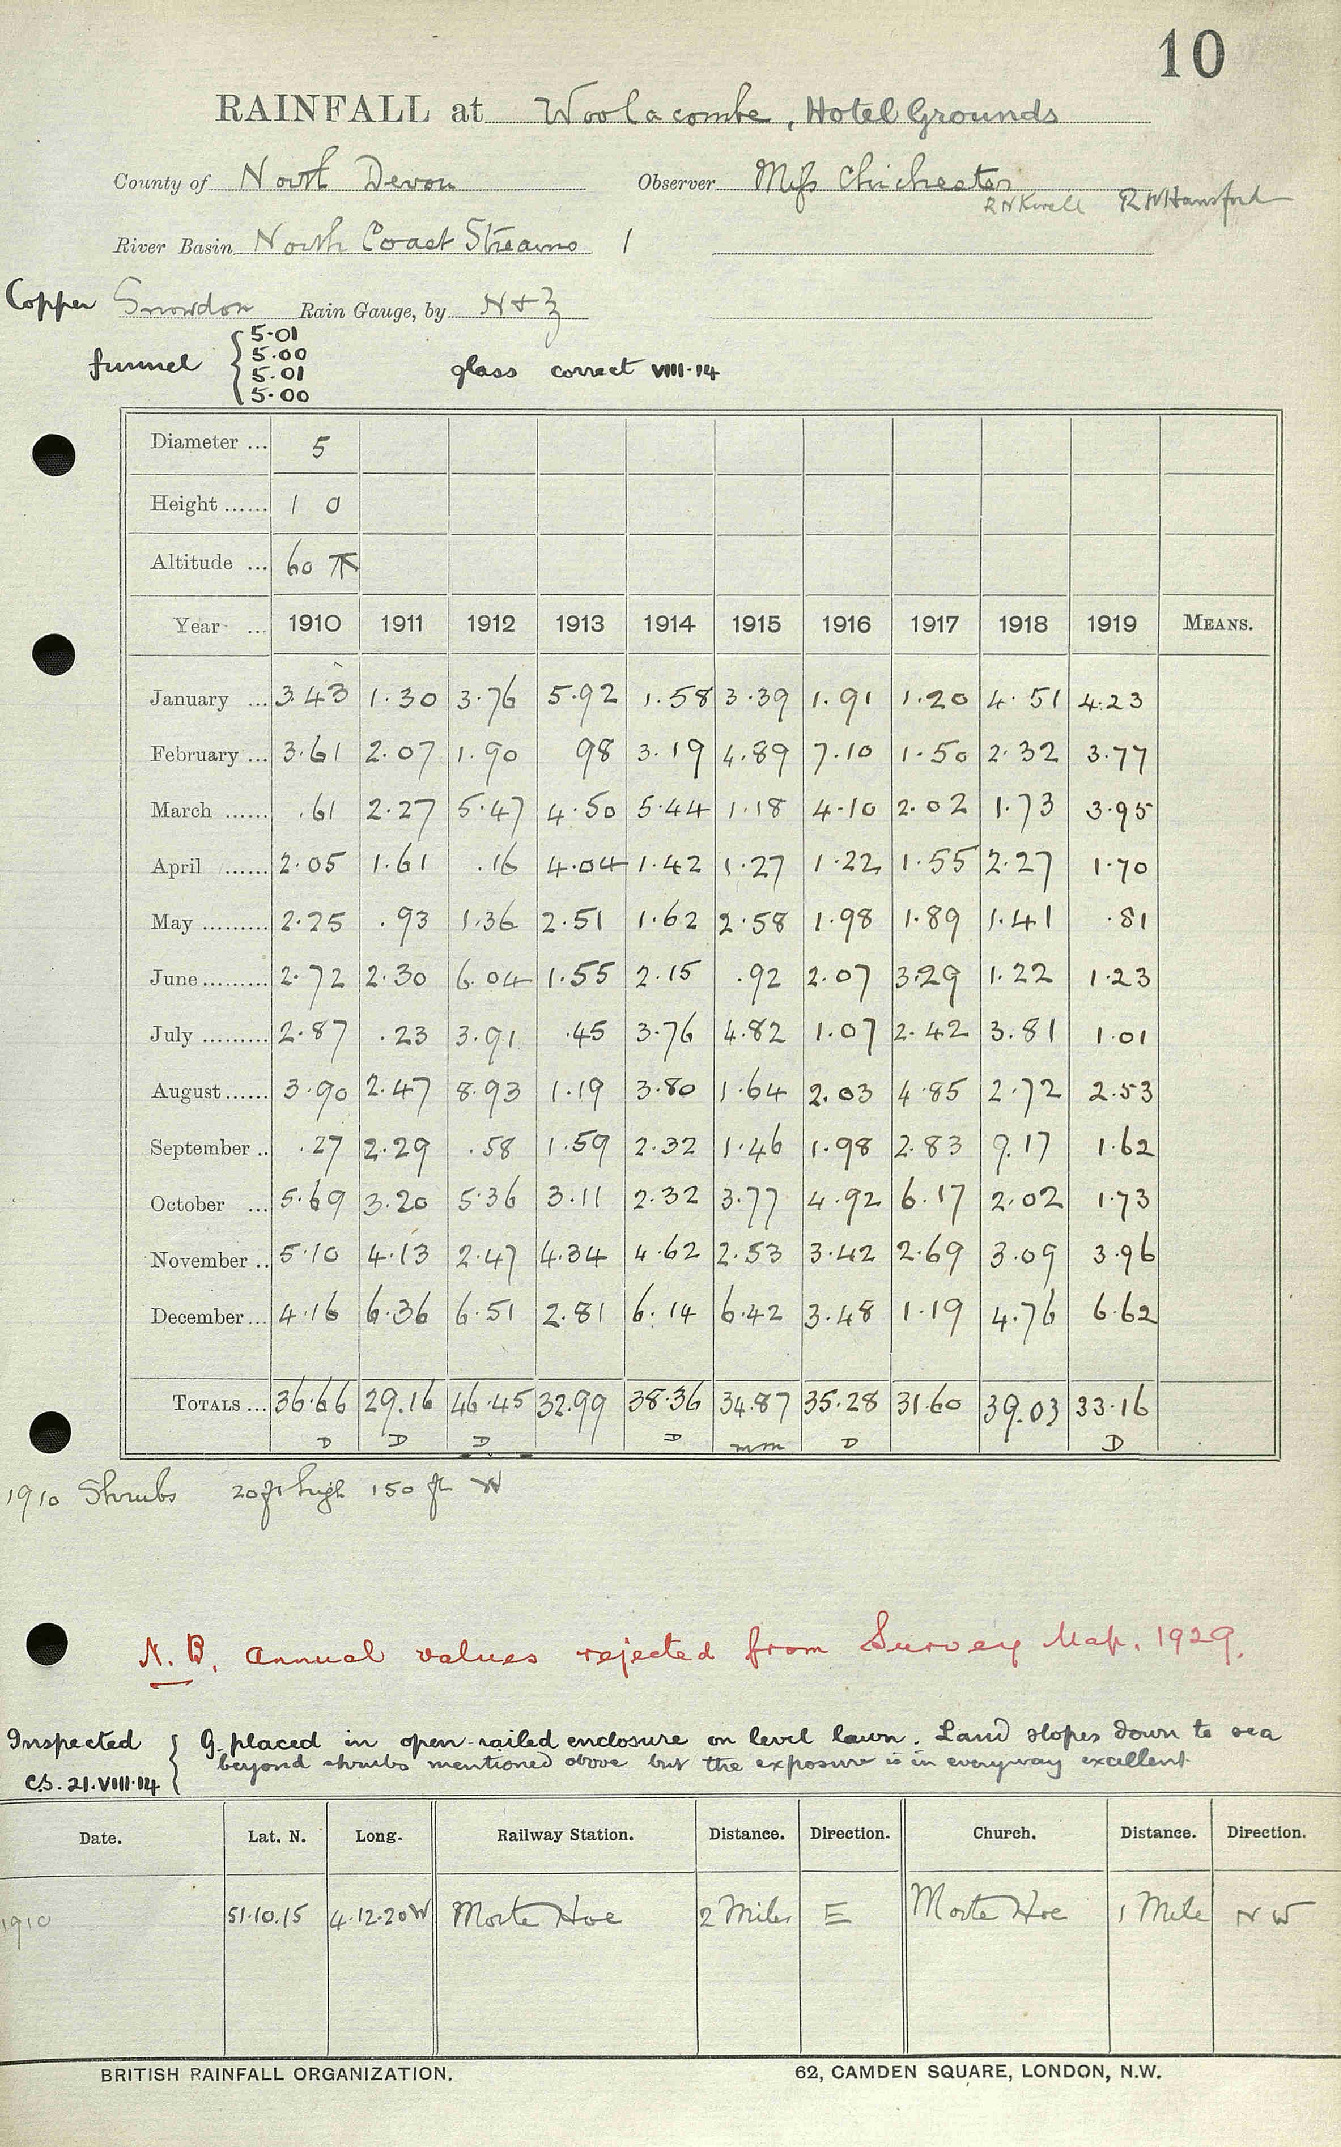 10
RAINFALL at Woolacombe, Hotel Grounds
County of North Devon Observer Miss Chichester
R W Hansford
River Basin North Coast Streams 1
Copper Snowdon Rain Gauge, by N & Z
funnel { 5.01 5.00 5.01 5.00 glass correct VIII.14
Diameter ... 5
Height ...... 1 0
Altitude ... 60
Year ... 1910 1911 1912 1913 1914 1915 1916 1917 1918 1919 MEANS.
January ... 3.43 1.30 3.76 5.92 1.58 3.39 1.91 1.20 4.51 4.23
February ... 3.61 2.07 1.90 98 3.19 4.89 7.10 1.50 2.32 3.77
March ...... .61 2.27 5.47 4.50 5.44 1.18 4.10 2.02 1.73 3.95
April ...... 2.05 1.61 .16 4.04 1.42 1.27 1.22 1.55 2.27 1.70
May ......... 2.25 .93 1.36 2.51 1.62 2.58 1.98 1.89 1.41 .81
June ......... 2.72 2.30 6.04 1.55 2.15 .92 2.07 3.29 1.22 1.23
July ......... 2.87 .23 3.91 .45 3.76 4.82 1.07 2.42 3.81 1.01
August ...... 3.90 2.47 8.93 1.19 3.80 1.64 2.03 4.85 2.72 2.53
September .. .27 2.29 .58 1.59 2.32 1.46 1.98 2.83 9.17 1.62
October ... 5.69 3.20 5.36 3.11 2.32 3.77 4.92 6.17 2.02 1.73
November .. 5.10 4.13 2.47 4.34 4.62 2.53 3.42 2.69 3.09 3.96
December ... 4.16 6.36 6.51 2.81 6.14 6.42 3.48 1.19 4.76 6.62
TOTALS ... 36.66 29.16 46.45 32.99 38.36 34.87 35.28 31.60 39.03 33.16
D D D D mm D D
1910 Shrubs 20 ft high 150 ft W
N.B. Annual values rejected from Survey Map. 1929.
Inspected { G. placed in open-railed enclosure on level lawn. Land slopes down to sea
C.S. 21.VIII.14 beyond shrubs mentioned above but the exposure is in everyway excellent
Date. Lat. N. Long. Railway Station. Distance. Direction. Church. Distance. Direction.
1910 51.10.15 4.12.20W Morte Hoe 2 Miles E Morte Hoe 1 Mile NW
BRITISH RAINFALL ORGANIZATION. 62, CAMDEN SQUARE, LONDON, N.W.